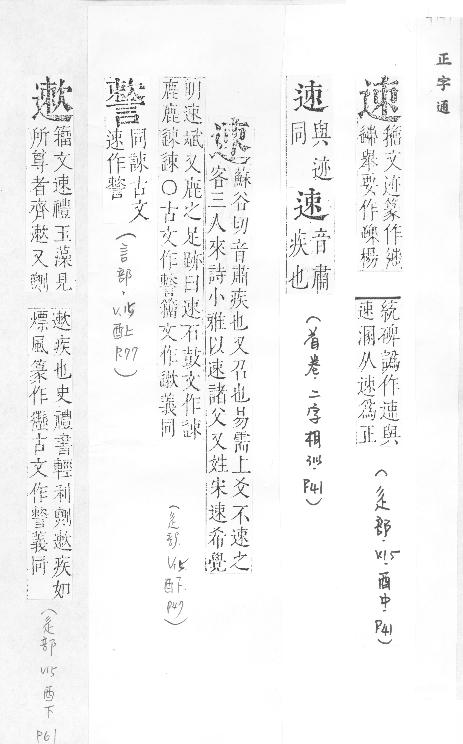 正字通
籀文迹篆作
碑舉要作 楊
統碑譌作速與
速溷从速爲正
(辵部.V15.酉中.P41)
速與迹
同
速音肅
疾也
(首卷.二字相似.P41)
蘇谷切音肅疾也又召也易需上爻不速之
客三人來詩小雅以速諸父又姓宋速希覺
明速斌又鹿之足跡曰速石鼓文作
鹿鹿速速○古文作 籀文作遬義同
(辵部.V15酉下.P47)
同諫古文
速作
(言部.V15酉上P77)
遬籀文速禮玉藻見
所尊者齊遬又
遬疾也史禮書輕利剽遬疾如
熛風篆作 古文作 義同
(辵部V15酉下P61